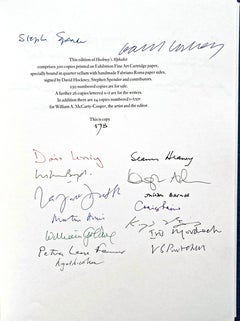 Stephen Spender
David Hockney
This edition of Hockney's Alphabet
comprises 300 copies printed on Exhibition Fine Art Cartridge paper,
specially bound in quarter vellum with handmade Fabriano Roma paper sides,
signed by David Hockney, Stephen Spender and contributors.
250 numbered copies are for sale.
A further 26 copies lettered A–Z are for the writers.
In addition there are 24 copies numbered I–XXIV
for William A. McCarty-Cooper, the artist and the editor.
This is copy
Doris Lessing
Seamus Heaney
Douglas Adams
Julian Barnes
Martin Amis
Craig Raine
William Golding
Iris Murdoch
Patrick Leigh Fermor
V S Pritchett